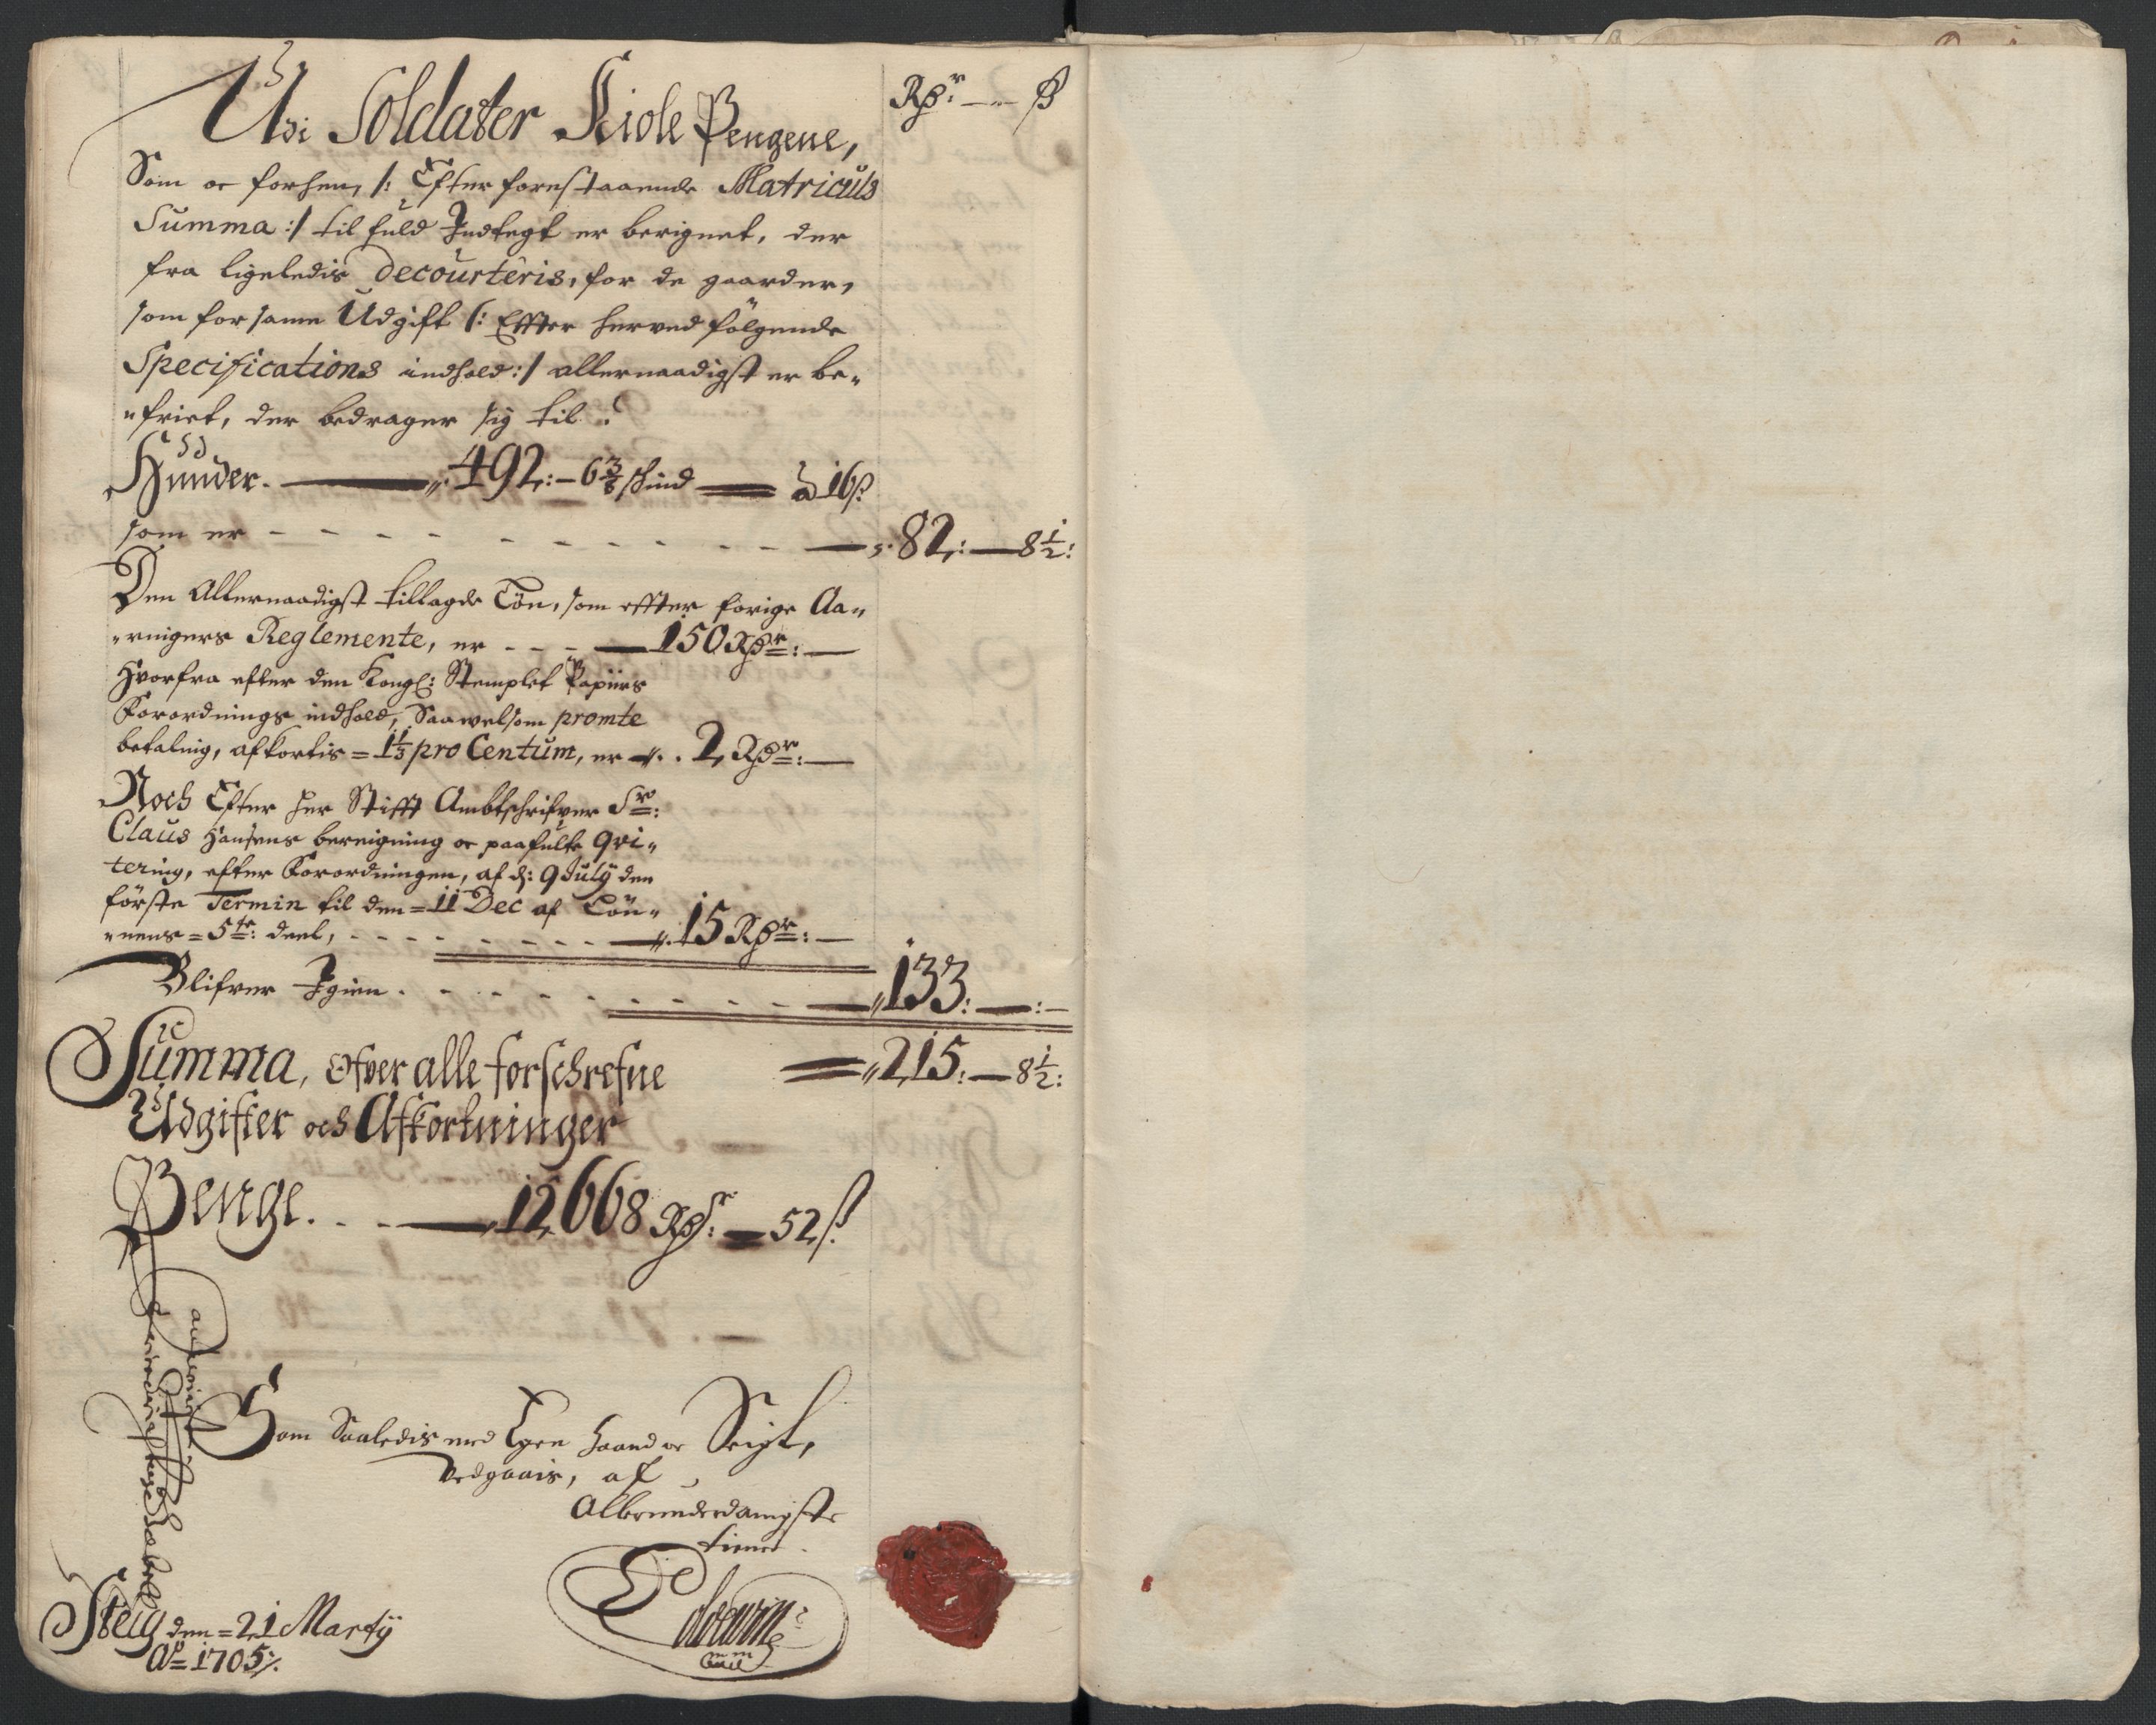 Udi Soldater Kiole Pengene,
Rdr — ß
Som oc forhen, /: Efter forestaaende Matriculs
Summa :/ til fuld Indtegt er berignet, der
fra ligeledis decourteris, for de gaarder,
som for samme Udgift /: Effter herved følgende
Specifications indhold :/ allernaadigst er be„
„friet, der bedrager sig til.
Hunder. — 492: – 6 3/8 skind — à 16 ß
som er - - - - - - - - - - — 82: — 8 1/2:
Den Allernaadigst tillagde Løn, som effter forige Aa„
„ringers Reglemente, er - - - — 150 Rdr: —
Hvorfra efter den Kongl: Stemplet Papiirs
Forordnings indhold, Saavelsom promte
betaling, afkortis = 1 1/3 pro Centum, er — 2 Rdr: —
Noch Efter her Stifft Ambtschrifver Sr:
Claus Hansens beregning oc paafulte qvi„
tering, efter Forordningen, af d: 9 July den
første Termin til den = 11 Dec af Løn„
„nens = 5te: deel, - - - - - - - - — 15 Rdr: —
Blifver Igien - - - - - - - - — 133: — : —
Summa, Ofver alle forschrefne — 215: — 8 1/2:
Udgifter och Afkortninger
Penge. - - — 12668 Rdr: — 52 ß
Som Saaledis med Egen haand oc Seigl,
Vedgaais, af
Allerunderdanigste
tiener.
Steig den = 21 Martij
Ao = 1705 /.